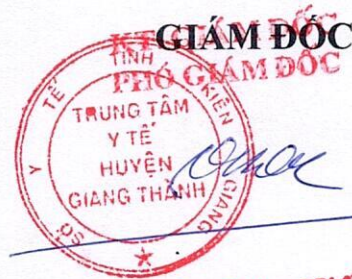 GIÁM ĐỐC
KT. GIÁM ĐỐC
PHÓ GIÁM ĐỐC
SỞ Y TẾ TỈNH KIÊN GIANG
TRUNG TÂM
Y TẾ
HUYỆN
GIANG THÀNH